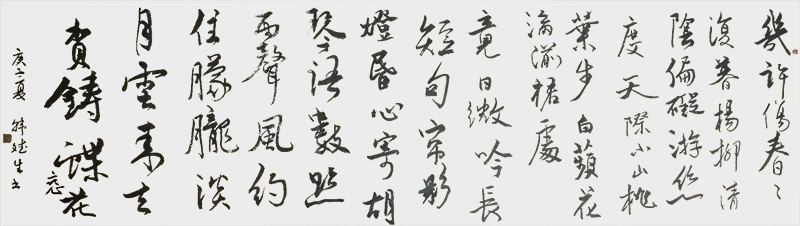 幾許傷春〻
復暮楊柳清
陰偏礙游丝
度天際小山桃
葉步白蘋花
滿湔裙處
竟日微吟長
短句帘影
燈昏心寄胡
琴語數點
雨聲風約
住朦朧淡
月雲来去
賀鑄蝶恋花
庚子夏 生书